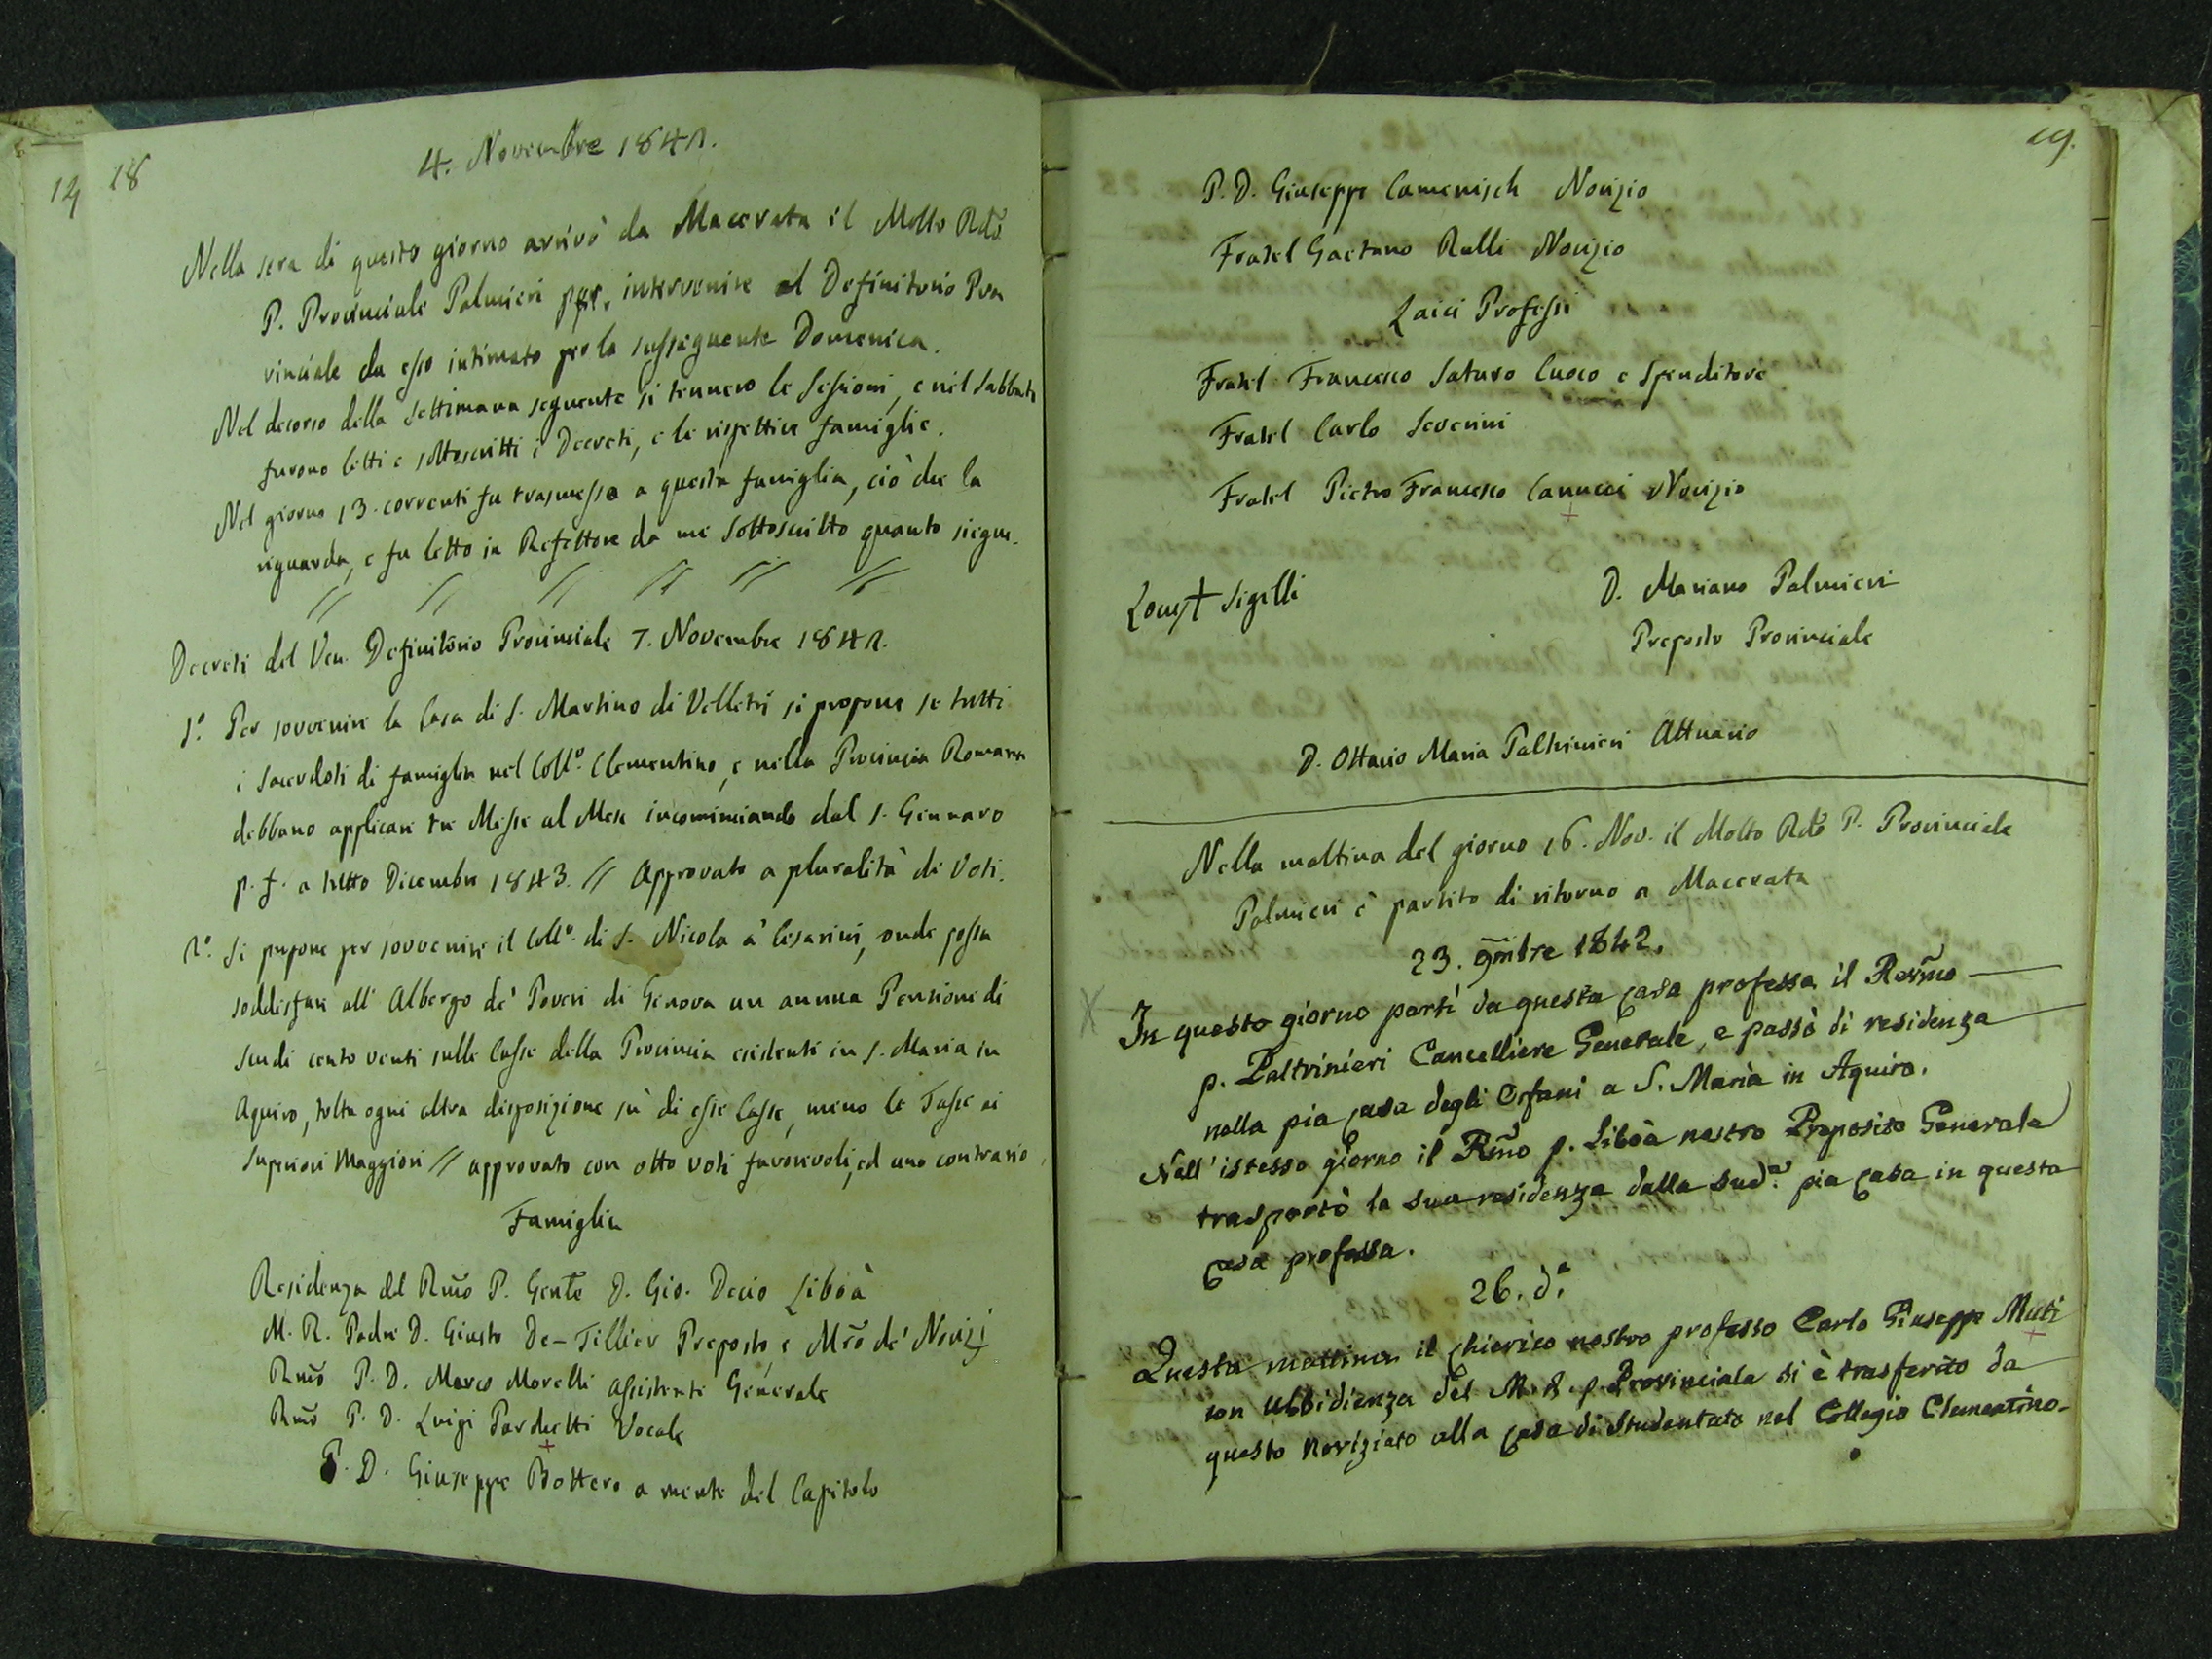 14 18
4. Novembre 1842.
Nella sera di questo giorno arrivò da Macerata il Molto Rdo
P. Provinciale Palmieri per intervenire al Definitorio Pro
vinciale da esso intimato per la susseguente Domenica.
Nel decorso della Settimana seguente si tennero le Sessioni, e nel Sabbato
furono letti e sottoscritti i Decreti, e le rispettive famiglie.
Nel giorno 13. corrente fu trasmesso a questa famiglia, ciò che la
riguarda, e fu letto in Refettore da me Sottoscritto quanto siegue.
// // // // // //
Decreti del Ven. Definitorio Provinciale 7. Novembre 1842.
1º. Per sovvenire la Casa di S. Martino di Velletri si propone se tutti
i Sacerdoti di famiglia nel Collº. Clementino, e nella Provincia Romana
debbano applicare tre Messe al Mese incominciando dal 1. Gennaro
p. f. a tutto Dicembre 1843. // Approvato a pluralità di Voti.
2º. Si propone per sovvenire il Collº. di S. Nicola a' Cesarini, onde possa
soddisfare all' Albergo de' Poveri di Genova un annua Pensione di
Scudi cento venti sulle Casse della Provincia esistenti in S. Maria in
Aquiro, tolta ogni altra disposizione su di esse Casse, meno le Tasse ai
Superiori Maggiori // approvato con otto voti favorevoli, ed uno contrario.
Famiglia
Residenza del Rmo P. Genle D. Gio. Decio Libòa
M. R. Padre D. Giusto De-Tillier Preposto, e Mro de' Novizj
Rmo P. D. Marco Morelli Assistente Generale
Rmo P. D. Luigi Parchetti Vocale
P. D. Giuseppe Bottero a mente del Capitolo
19.
P. D. Giuseppe Camenisch Novizio
Fratel Gaetano Rulli Novizio
Laici Professi
Fratel Francesco Saturo Cuoco e Spenditore
Fratel Carlo Severini
Fratel Pietro Francesco Canucci Novizio
Locus + Sigilli
D. Mariano Palmieri
Preposto Provinciale
D. Ottavio Maria Paltrinieri Attuario
Nella mattina del giorno 16. Nov. il Molto Rdo P. Provinciale
Palmieri è partito di ritorno a Macerata
23. 9mbre 1842.
X In questo giorno partì da questa casa professa il Revmo
p. Paltrinieri Cancelliere Generale, e passò di residenza
nella pia casa degli Orfani a S. Maria in Aquiro.
Nell' istesso giorno il Rmo p. Libòa nostro Preposito Generale
trasportò la sua residenza dalla sudª. pia casa in questa
casa professa.
26. dº.
Questa mattina il chierico nostro professo Carlo Giuseppe Muti
con ubbidienza del M. R. p. Provinciale si è trasferito da
questo noviziato alla casa di Studentato nel Collegio Clementino.